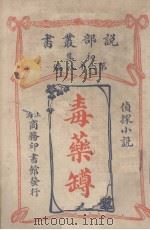 說部叢書
偵探小說
毒藥罇
上海
商務印書館發行